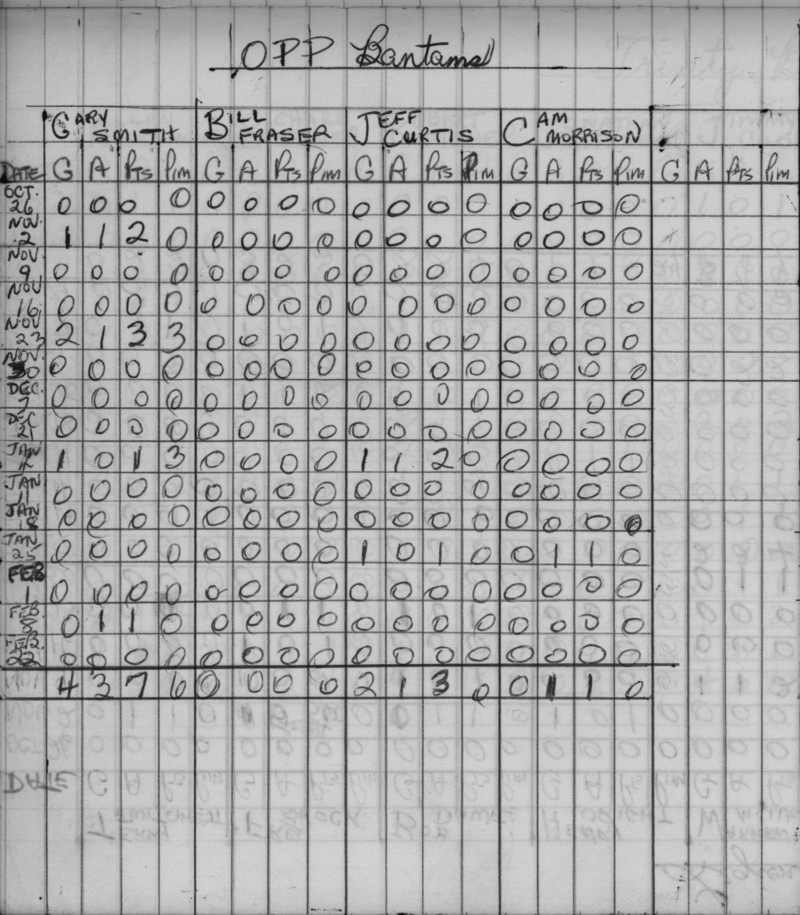 OPP Bantams
GARY SMITH BILL FRASER JEFF CURTIS CAM MORRISON
DATE G A Pts Pim G A Pts Pim G A Pts Pim G A Pts Pim G A Pts Pim
OCT. 26 0 0 0 0 0 0 0 0 0 0 0 0 0 0 0 0
NOV. 2 1 1 2 0 0 0 0 0 0 0 0 0 0 0 0 0
NOV. 9 0 0 0 0 0 0 0 0 0 0 0 0 0 0 0 0
NOV 16 0 0 0 0 0 0 0 0 0 0 0 0 0 0 0 0
NOV 23 2 1 3 3 0 0 0 0 0 0 0 0 0 0 0 0
NOV. 30 0 0 0 0 0 0 0 0 0 0 0 0 0 0 0 0
DEC. 7 0 0 0 0 0 0 0 0 0 0 0 0 0 0 0 0
DEC 21 0 0 0 0 0 0 0 0 0 0 0 0 0 0 0 0
JAN 1 0 1 3 0 0 0 0 1 1 2 0 0 0 0 0
JAN 11 0 0 0 0 0 0 0 0 0 0 0 0 0 0 0 0
JAN 18 0 0 0 0 0 0 0 0 0 0 0 0 0 0 0 0
JAN 25 0 0 0 0 0 0 0 0 1 0 1 0 0 1 1 0
FEB 1 0 0 0 0 0 0 0 0 0 0 0 0 0 0 0 0
FEB 8 0 1 1 0 0 0 0 0 0 0 0 0 0 0 0 0
FEB. 22 0 0 0 0 0 0 0 0 0 0 0 0 0 0 0 0
4 3 7 6 0 0 0 0 2 1 3 0 0 1 1 0